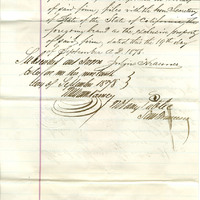 of said firm, files with the Secretary
of State of the State of California the
foregoing brand as the exclusive property
of said firm, dated this the 19th day
of September A.D. 1878.
Subscribed and Sworn
before me this nineteenth
day of September 1878
Notary Public